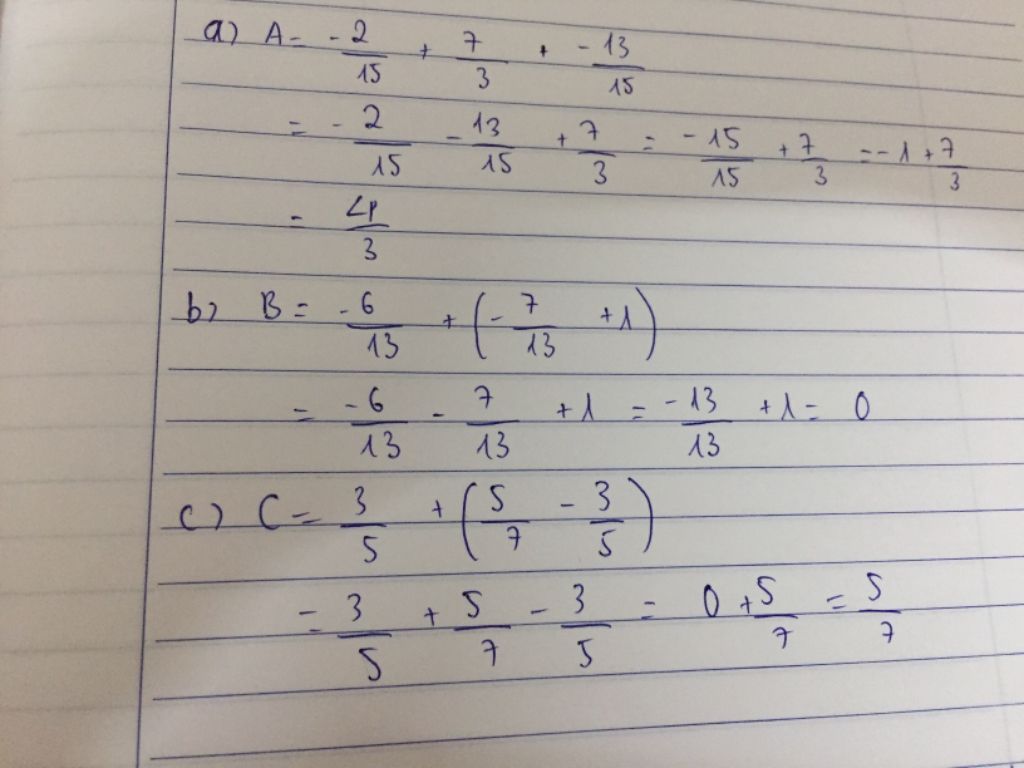 a) A = -2/15 + 7/3 + -13/15
= -2/15 - 13/15 + 7/3 = -15/15 + 7/3 = -1 + 7/3
= 4/3
b) B = -6/13 + (-7/13 + 1)
= -6/13 - 7/13 + 1 = -13/13 + 1 = 0
c) C = 3/5 + (5/7 - 3/5)
= 3/5 + 5/7 - 3/5 = 0 + 5/7 = 5/7